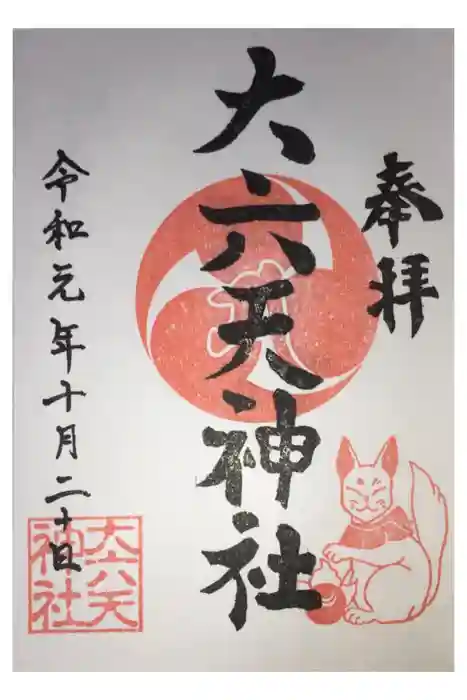 奉拝
大六天神社
令和元年十月二十日
大六天
神社